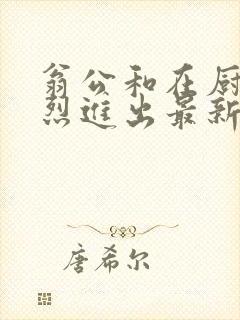 翁公和在厨
烈进出最新
唐希尔